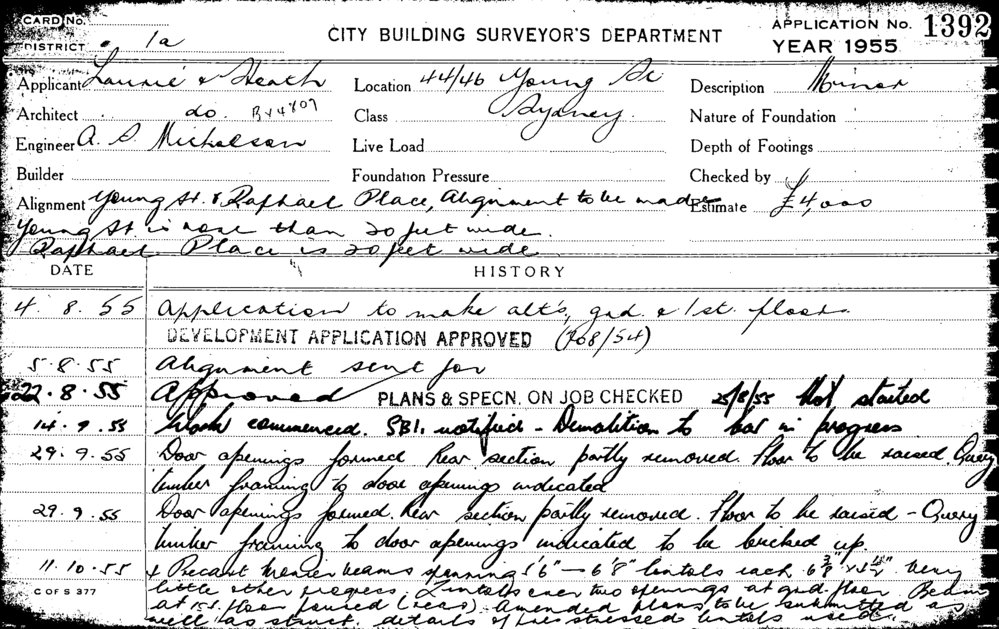 CARD No.
DISTRICT 1a
CITY BUILDING SURVEYOR'S DEPARTMENT
APPLICATION No. 1392
YEAR 1955
Applicant Laurie & Heath
Location 44/46 Young St
Description Minor
Architect do.
Class Sydney.
Nature of Foundation
Engineer A. S. Mickelson
Live Load
Depth of Footings
Builder
Foundation Pressure
Checked by
Alignment Young St. & Raphael Place, Alignment to be made
Estimate £4,000
Young St. is more than 20 feet wide.
Raphael Place is 20 feet wide
DATE HISTORY
4. 8. 55 Application to make alt's, gnd & 1st. floors.
DEVELOPMENT APPLICATION APPROVED (768/54)
5.8.55 Alignment sent for
22.8.55 Approved PLANS & SPECN. ON JOB CHECKED 25/8/55 Not started
14.9.55 Work commenced. SBI. notified - Demolition to bar in progress
29.9.55 Door openings formed Rear section partly removed. Floor to be raised. Query
timber framing to door openings indicated
29.9.55 Door openings formed. Rear section partly removed. Floor to be raised - Query
timber framing to door openings indicated to be bricked up.
11.10.55 Precast beams spanning 5'6" - 6'8" lintols each Very
little other progress. Lintols over two openings at gnd. floor
at 1st. floor poured (rear). Amended plans to be submitted as
well as struct. details of prestressed lintols used.
C OF S 377